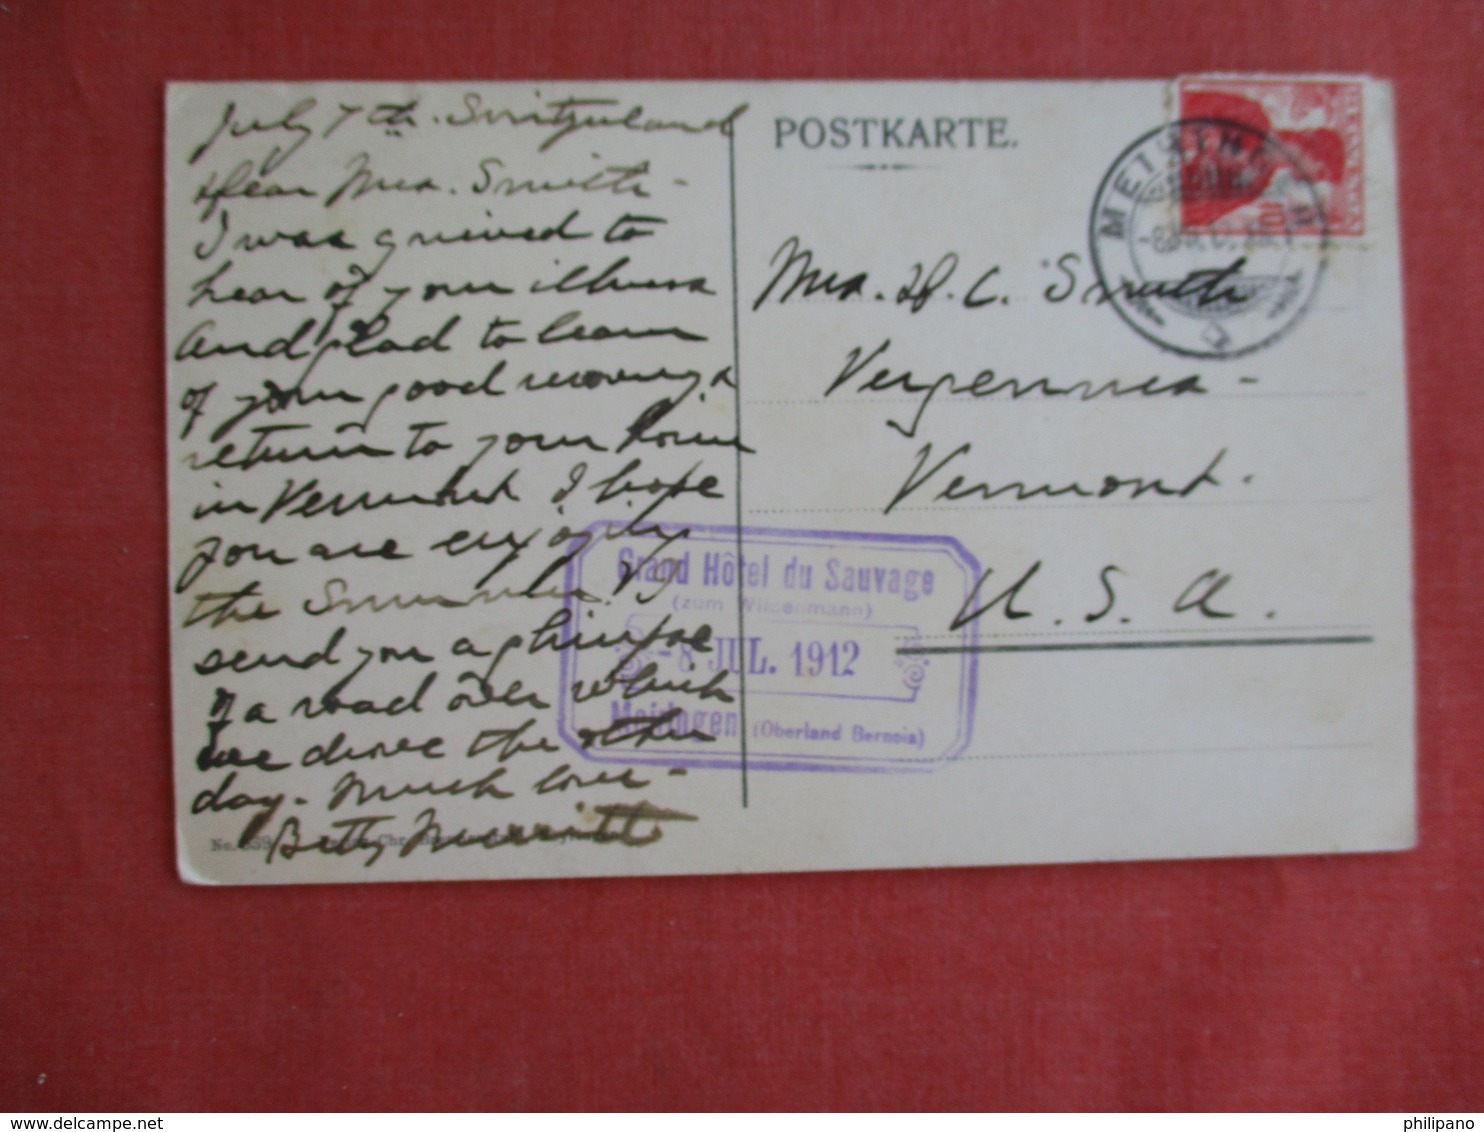 July 7th. Switzerland
Dear Mrs. Smith -
I was grieved to
hear of your illness
and glad to learn
of your good recovery &
return to your home
in Vermont. I hope
you are enjoying
the Summer. I
send you a glimpse
of a road over which
we drove the other
day. Much love -
Betty Merritt
No.
POSTKARTE.
MEIRINGEN
Mrs. H. C. Smith
Vergennes -
Vermont.
U. S. A.
Grand Hôtel du Sauvage
(zum Wildenmann)
-8 JUL. 1912
Meiringen (Oberland Bernois)
philipano